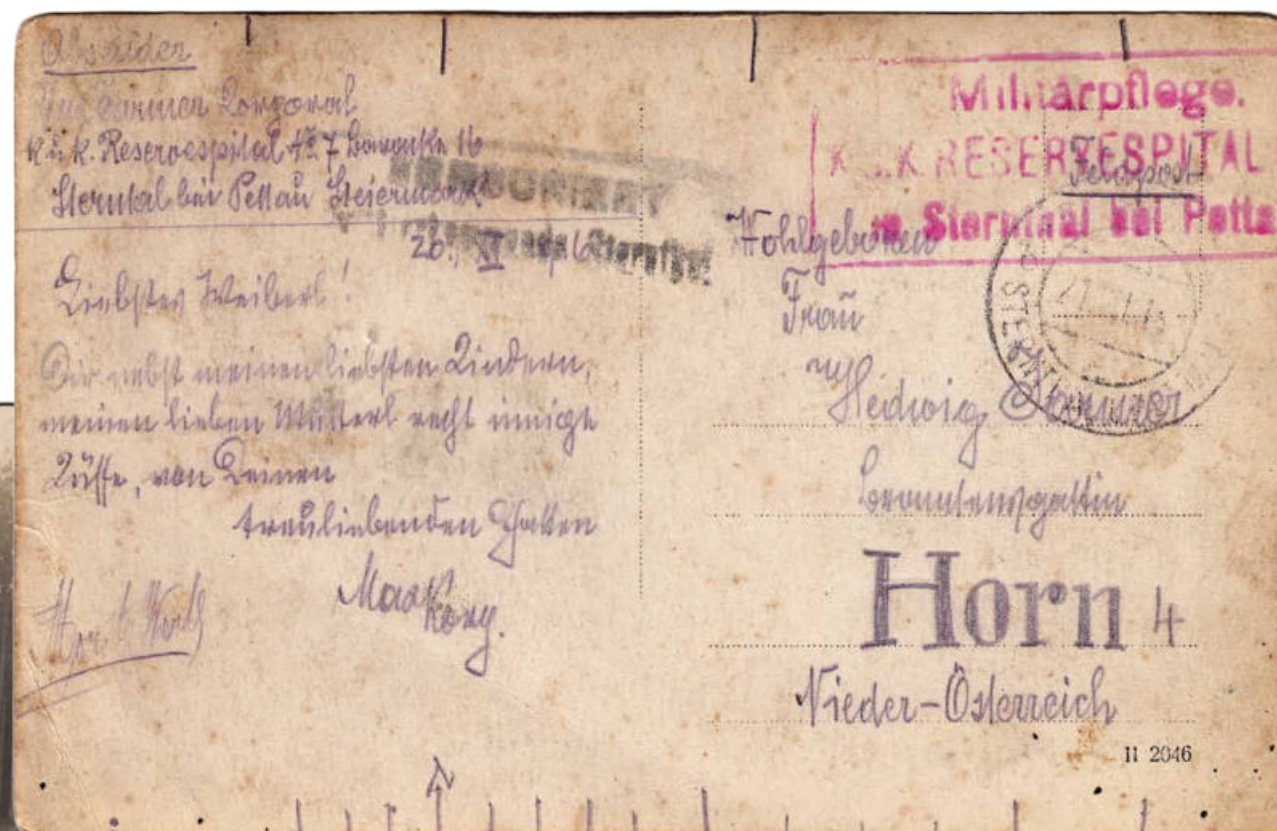 Absender
Korporal
k. u. k. Reservespital No 7 Baracke 16
Sterntal bei Pettau Steiermark
ZENSURIERT
Sternthal
26. XI 16
Liebstes Weiberl!
Dir nebst meinen liebsten Kindern,
meinen lieben Mutterl recht innige
Küsse, von Deinen
treuliebenden Gatten
Max
Korp.
Militärpflege.
K. u. K. RESERVESPITAL
in Sternthal bei Petta
Feldpost
STERNTHAL
Wohlgeboren
Frau
Hedwig
Beamtensgattin
Horn 4
Nieder-Österreich
II 2046